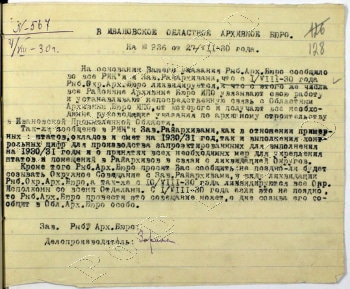 № 567
/VIII-30г.
126
128
В ИВАНОВСКОЕ ОБЛАСТНОЕ АРХИВНОЕ БЮРО.
На № 936 от 27-VII-30 года.
На основании Вашего указания Рыб.Арх.Бюро сообщило
во все РИК'и и Зав.Райархивами, что с 1/VIII-30 года
Рыб.Окр.Арх.Бюро ликвидируется, что с этого числа
все Районные Архивные Бюро ИПО увязывают свою работу
и устанавливают непосредственную связь с Областным
Архивным Бюро ИПО, от которого и получают все необхо-
димые руководящие указания по архивному строительству
в Ивановской Промышленной Области.
Так-же сообщено в РИК'и и Зав.Райархивами, как в отношении пример-
ных: штатов, окладов и смет на 1930/31 год, так и выполнения конт-
рольных цифр для производства запроектированных для выполнения
на 1930/31 год и о принятии всех необходимых мер для укрепления
штатов и помещений в Райархивов в связи с ликвидацией Округов.
Кроме того Рыб.Арх.Бюро просит Вас сообщить: не поздно-ли будет
созывать Окружное Совещание с Зав.Райархивами, в виду ликвидации
Рыб.Окр.Арх.Бюро, а так-же с 10/VIII-30 года ликвидируются все Окр.
Исполкомы со всеми Отделами. С 1/VIII-30 года если это не поздно,
то Рыб.Арх.Бюро провести это совещание может, о дне созыва его со-
общит в Обл.Арх.Бюро особо.
Зав. Рыб. Арх.Бюро:
Делопроизводитель: